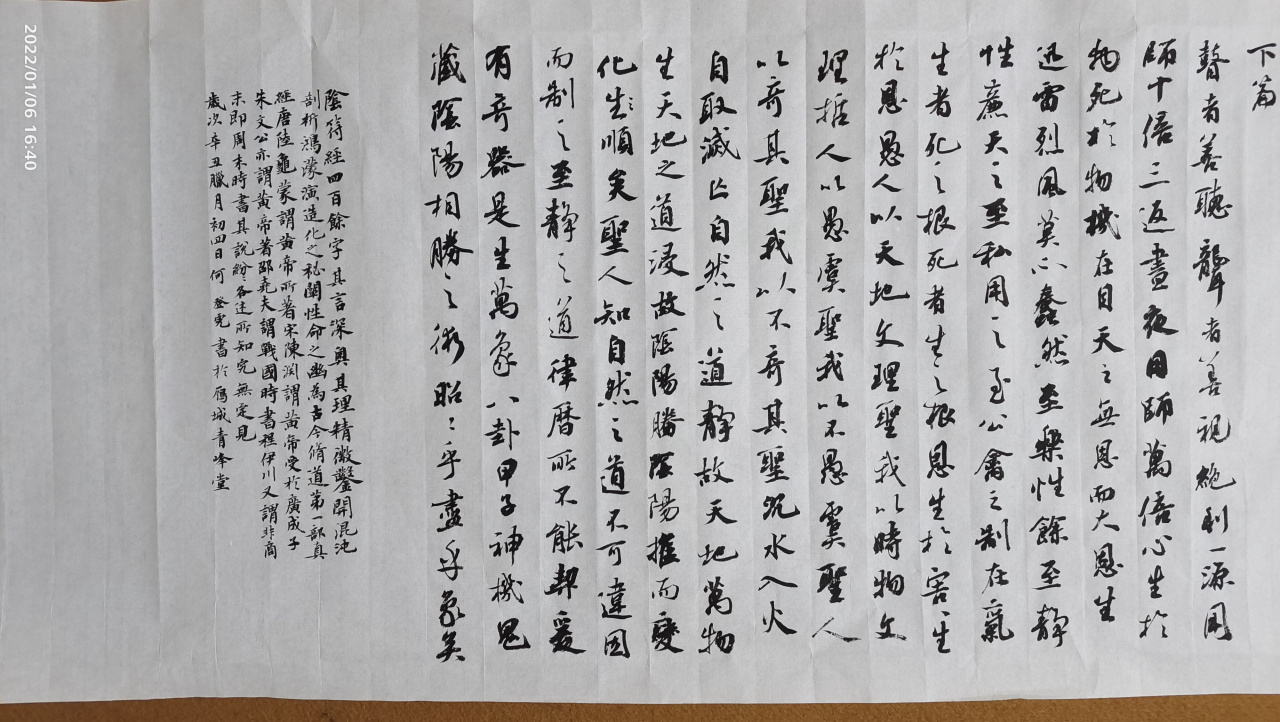 下篇
瞽者善聽聾者善視絶利一源用
師十倍三返晝夜用師萬倍心生於
物死於物機在目天之無恩而大恩生
迅雷烈風莫不蠢然至樂性餘至靜
性廉天之至私用之至公禽之制在氣
生者死之根死者生之根恩生於害害生
於恩愚人以天地文理聖我以時物文
理哲人以愚虞聖我以不愚虞聖人
以奇其聖我以不奇其聖沉水入火
自取滅亡自然之道靜故天地萬物
生天地之道浸故陰陽勝陰陽推而變
化生順矣聖人知自然之道不可違因
而制之至靜之道律曆所不能契爰
有奇器是生萬象八卦甲子神機鬼
藏陰陽相勝之術昭昭乎盡乎象矣
陰符經四百餘字其言深奧其理精微鑿開混沌
剖析鴻濛演造化之秘闡性命之幽為古今脩道第一部真
經唐陸龜蒙謂黄帝所著宋陳淵謂黄帝受於廣成子
朱文公亦謂黄帝著邵堯夫謂戰國時書程伊川又謂非商
末即周末時書其說紛各述所知究無定見
歲次辛丑臘月初四日何書於雁城青峰堂
2022/01/06 16:40